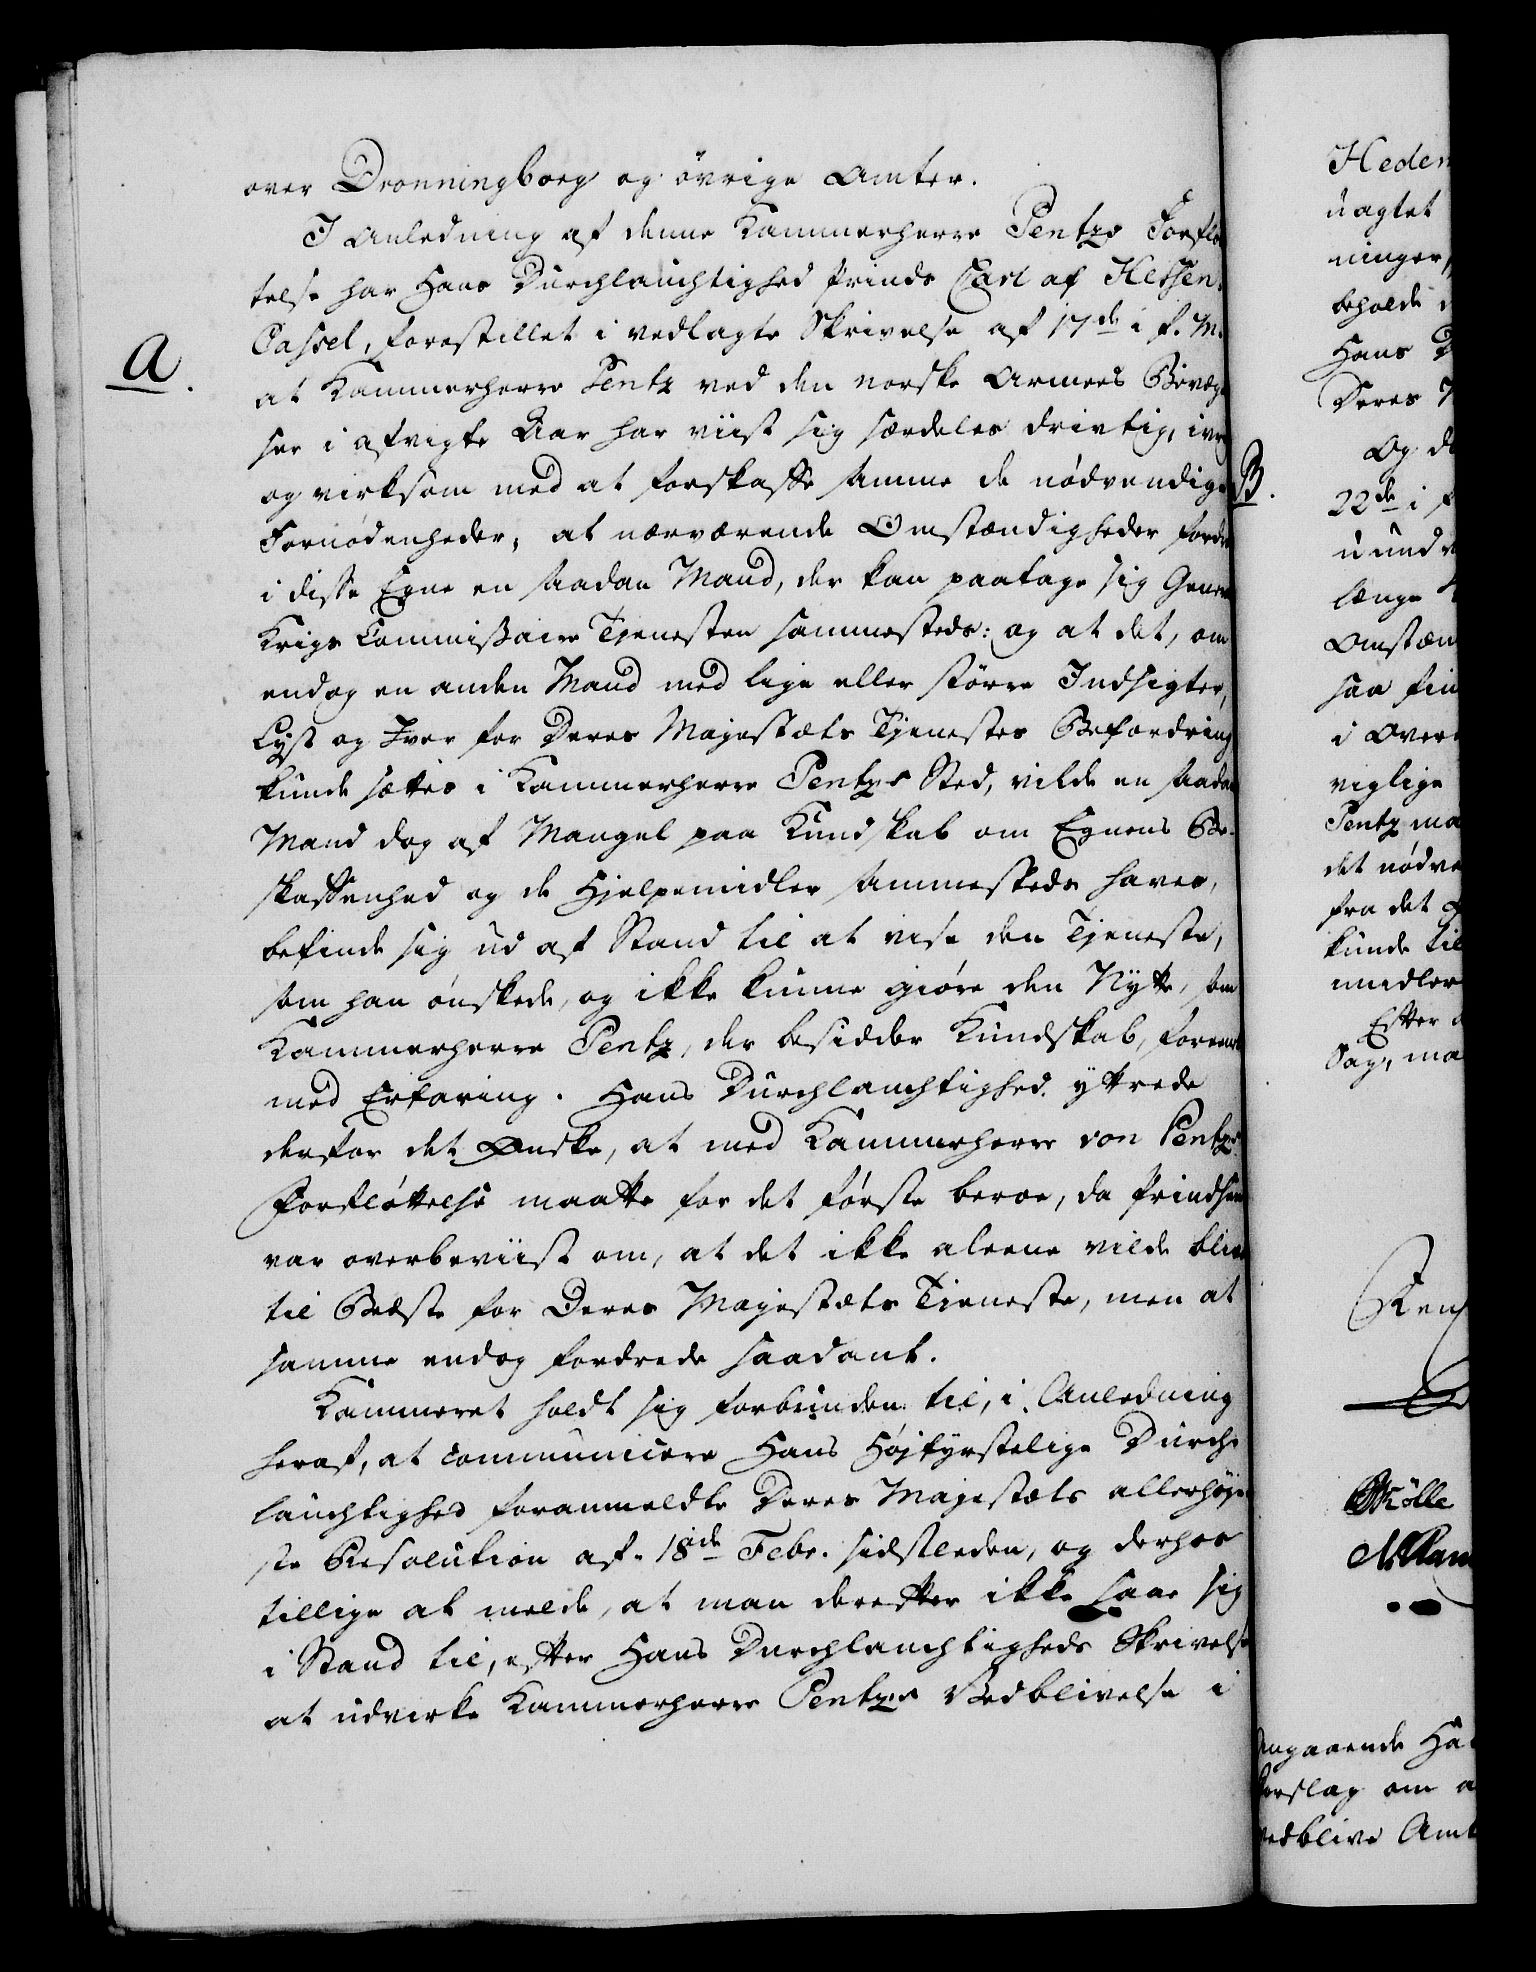 over Dronningborg og øvrige Amter.
I Anledning af denne Kammerherre Pentzes Forflø
telse har Hans Durchlauchtighed Prinds Carl af Hessen-
Cassel, forestillet i vedlagte Skrivelse af 17de i f. M.
A.
at Kammerherre Pentz ved den norske Armees Bevægel
ser i afvigte Aar har viist sig særdeles drivtig, ivrig
og virksom med at forskaffe samme de nødvendige
Fornødenheder, at nærværende Omstændigheder fordre
i disse Egne en saadan Mand, der kan paatage sig General
Krigs Commissaire Tjenesten sammesteds: og at det, om
endog en anden Mand med lige eller større Indsigter,
Lyst og Iver for Deres Majestæts Tjenestes Befordring
kunde sættes i Kammerherre Pentzes Sted, vilde en saadan
Mand dog af Mangel paa Kundskab om Egnens Be-
skaffenhed og de Hjelpemidler sammesteds haves,
befinde sig ud af Stand til at vise den Tjeneste,
som han ønskede, og ikke kunne giøre den Nytte, som
Kammerherre Pentz, der besidder Kundskab, foreenet
med Erfaring. Hans Durchlauchtighed yttrede
derfor det Ønske, at med Kammerherre von Pentzes
Forfløttelse maatte for det første beroe, da Prindsen
var overbeviist om, at det ikke aleene vilde blive
til Beste for Deres Majestæts Tieneste, men at
samme endog fordrede saadant.
Kammeret holdt sig forbunden til, i Anledning
heraf, at communicere Hans Højfyrstelige Durch-
lauchtighed foranmeldte Deres Majestæts allerhøje
ste Resolution af 18de Febr. sidstleden, og derhos
tillige at melde, at man derefter ikke saae sig
i Stand til, efter Hans Durchlauchtigheds Skrivelse
at udvirke Kammerherre Pentzes Vedblivelse i
Heden
uagtet
ninger,
beholde
Hans
Deres
Og
B.
22de i
længe
Omstæn
saa
i Over
viglige
Pentz
det nødve
fra det
kunde til
midler
Efter
Sag, ma
Angaaende
Forslag om
vedblive Amt